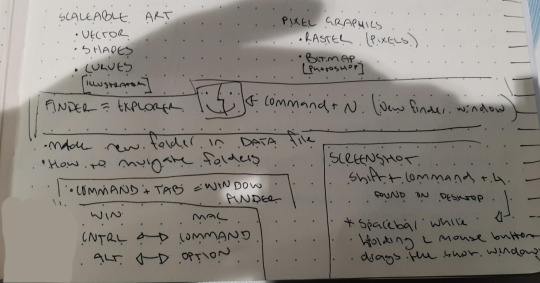 SCALEABLE ART
• VECTOR
• SHAPES
• CURVES
[ILLUSTRATOR]
PIXEL GRAPHICS
• RASTER (PIXELS)
• BITMAP
[PHOTOSHOP]
FINDER = EXPLORER ← COMMAND + N. (New finder window)
• made new folder in DATA file
• How to navigate folders
• COMMAND + TAB = WINDOW
FINDER
WIN MAC
CNTRL ↔ COMMAND
ALT ↔ OPTION
SCREENSHOT
Shift + command + 4
FOUND ON DESKTOP
* Spacebar while
Holding L mouse button
drags the window